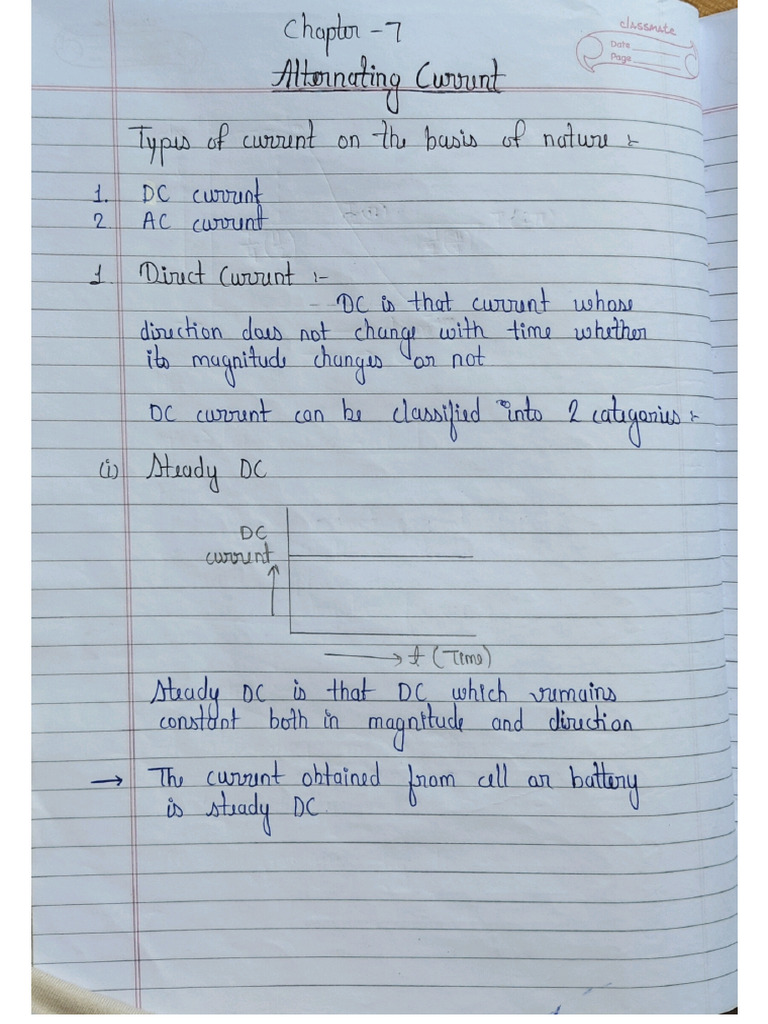 classmate
Date
Page
Chapter - 7
Alternating Current
Types of current on the basis of nature :-
1. DC current
2 AC current
1. Direct Current :-
DC is that current whose
direction does not change with time whether
its magnitude changes or not
DC current can be classified into 2 categories :-
(i) Steady DC
DC
current
→ t (Time)
Steady DC is that DC which remains
constant both in magnitude and direction
→ The current obtained from cell or battery
is steady DC